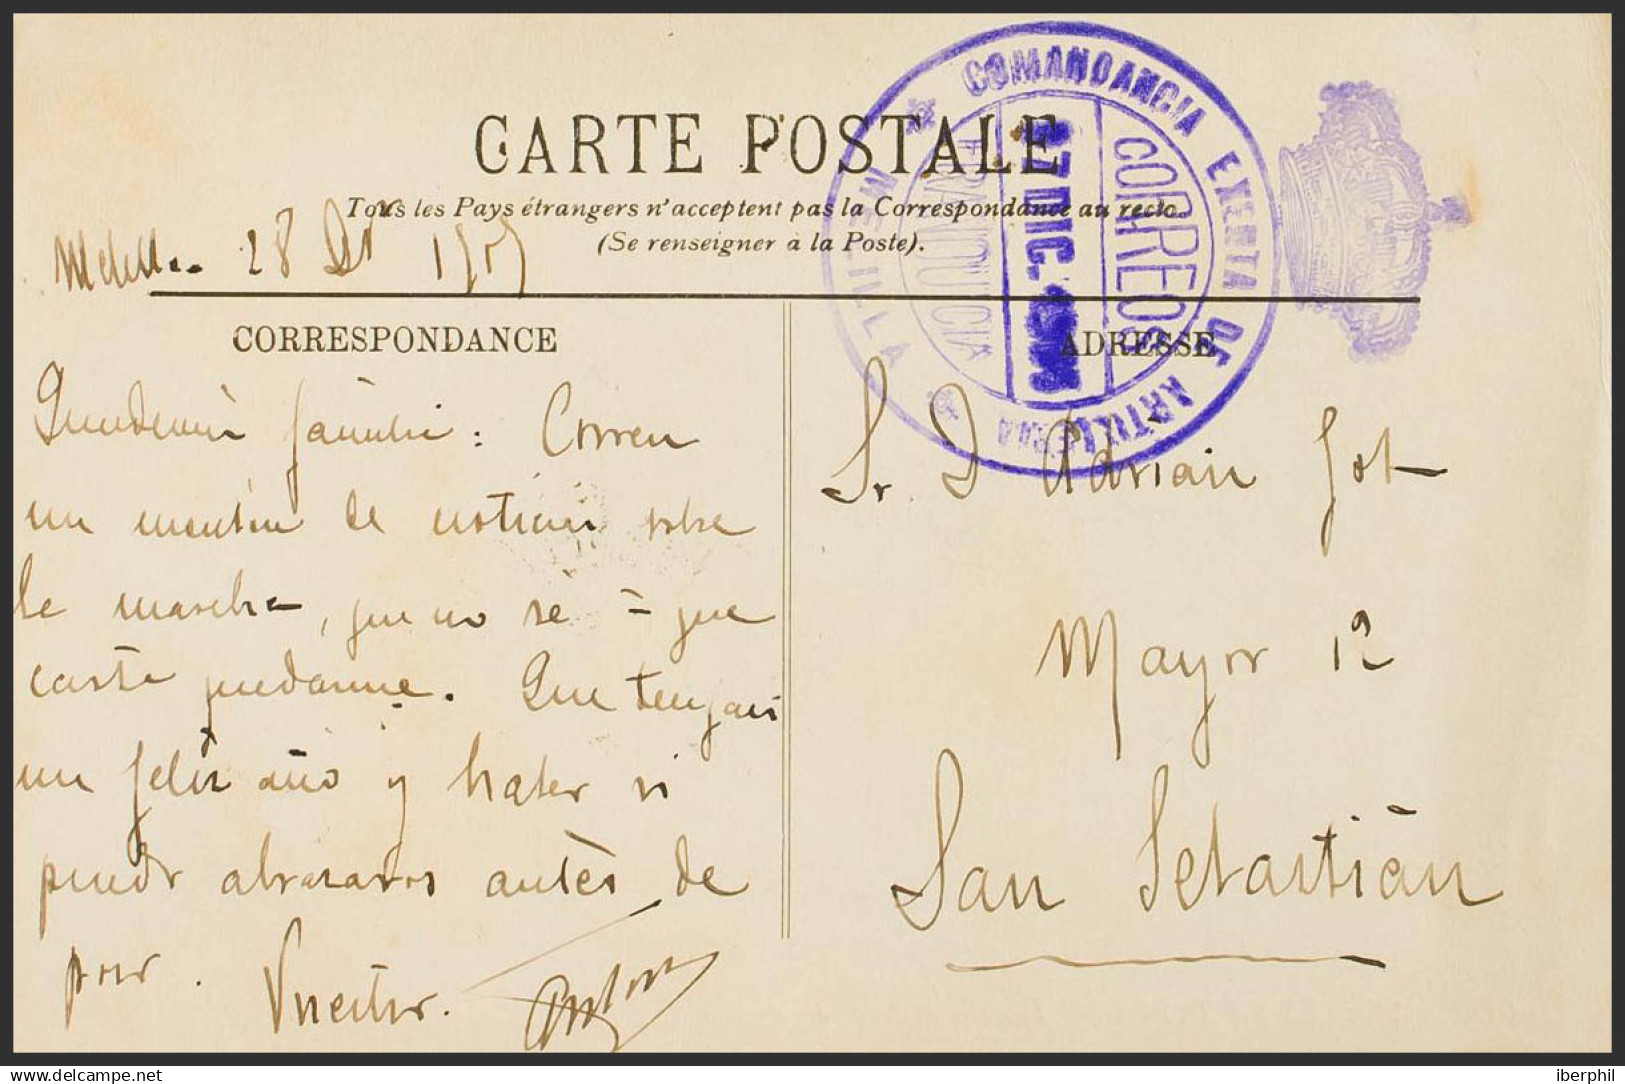 CARTE POSTALE
Tous les Pays étrangers n'acceptent pas la Correspondance au recto.
(Se renseigner à la Poste).
Melilla 28 Dbr
COMANDANCIA EXENTA DE ARTILLERIA
MELILLA
FRANQUICIA
27 DIC.
CORREOS
CORRESPONDANCE
ADRESSE
familia: Corren
un monton de noticias sobre
la marcha, que no sé a que
carta quedarme. Que tengais
un feliz año y hater si
puedo abrazaros antes de
poco. Vuestro.
Antonio
Sr. D Adrian Got
Mayor 12
San Sebastián
delcampe.net
iberphil